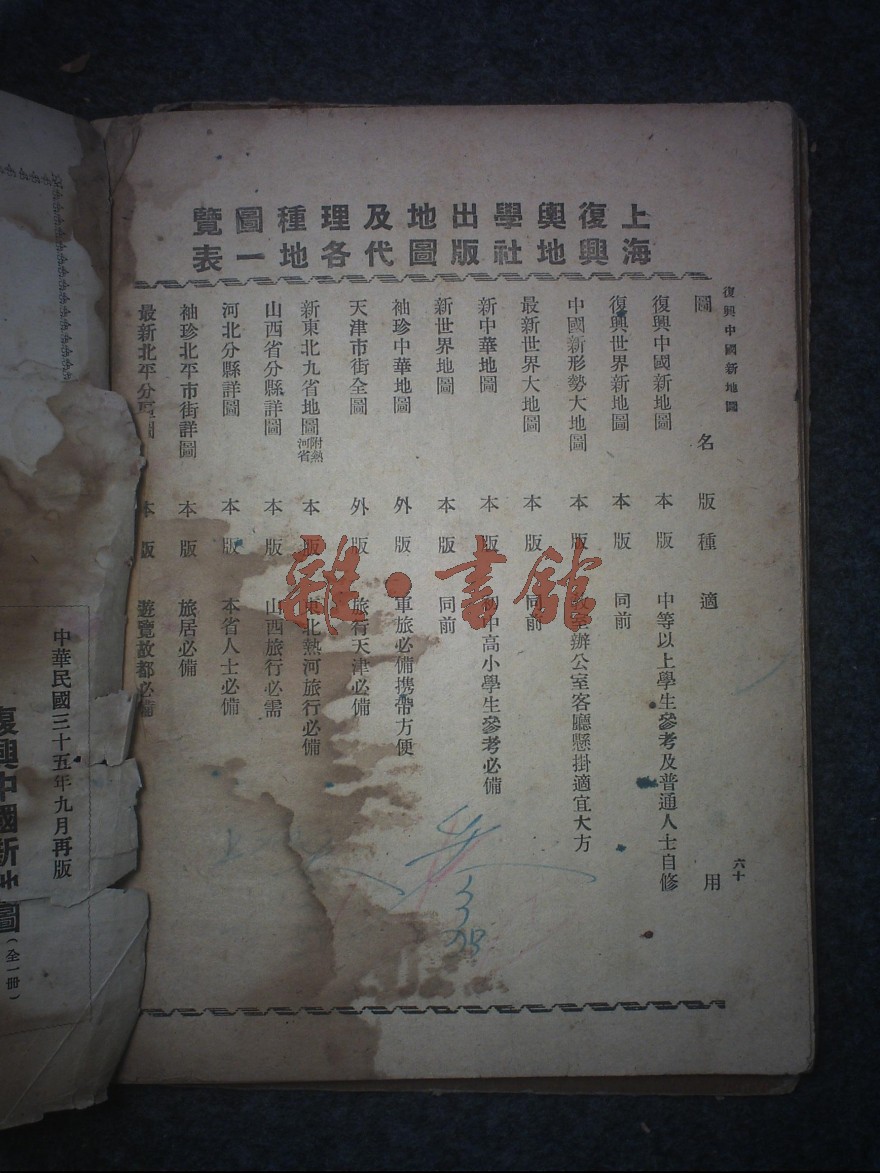 復興中國新地圖
六十
上海復興輿地學社出版地圖及代理各種地圖一覽表
圖名 版種 適用
復興中國新地圖 本版 中等以上學生參考及普通人士自修
復興世界新地圖 本版 同前
中國新形勢大地圖 本版 教室辦公室客廳懸掛適宜大方
最新世界大地圖 本版 同前
新中華地圖 本版 初中高小學生參考必備
新世界地圖 本版 同前
袖珍中華地圖 外版 軍旅必備携帶方便
天津市街全圖 外版 旅行天津必備
新東北九省地圖附熱河省 本版 東北熱河旅行必備
山西省分縣詳圖 本版 山西旅行必需
河北分縣詳圖 本版 本省人士必備
袖珍北平市街詳圖 本版 旅居必備
最新北平分區圖 本版 遊覽故都必備
中華民國三十五年九月再版
復興中國新地圖(全一冊)
雜·書館